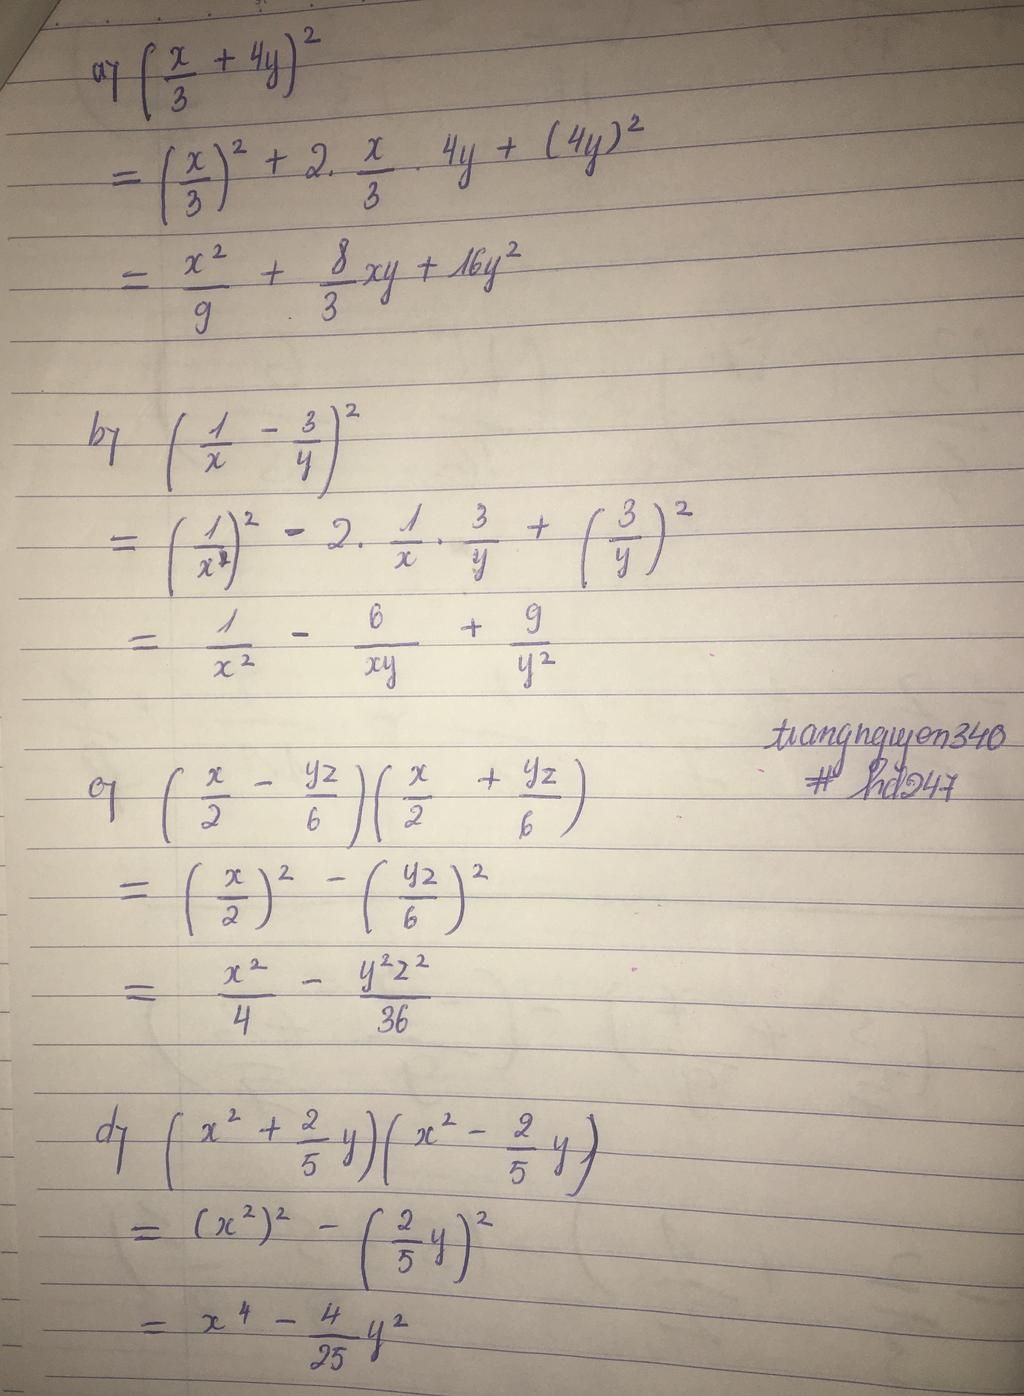 a) (x/3 + 4y)²
= (x/3)² + 2. x/3 . 4y + (4y)²
= x²/9 + 8/3 xy + 16y²
b) (1/x - 3/y)²
= (1/x)² - 2. 1/x . 3/y + (3/y)²
= 1/x² - 6/xy + 9/y²
trangnguyen340
# hd247
c) (x/2 - yz/6)(x/2 + yz/6)
= (x/2)² - (yz/6)²
= x²/4 - y²z²/36
d) (x² + 2/5 y)(x² - 2/5 y)
= (x²)² - (2/5 y)²
= x⁴ - 4/25 y²